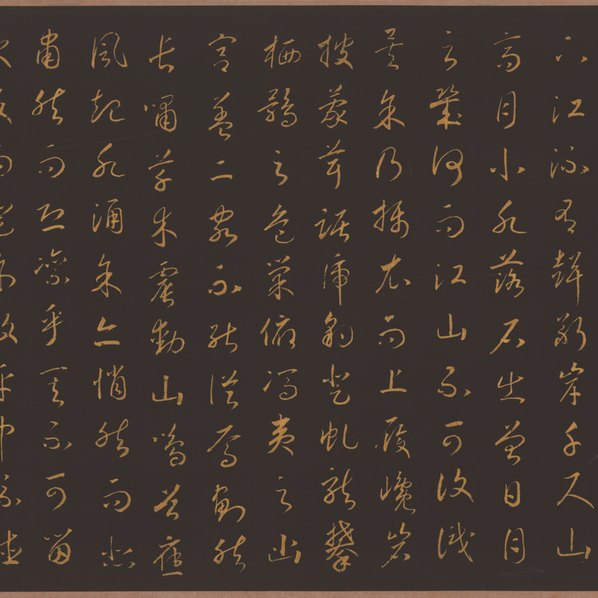 下江流有聲斷岸千尺山
高月小水落石出曾日月
之幾何而江山不可復識
矣余乃攝衣而上履巉岩
披蒙茸踞虎豹登虬龍攀
栖鶻之危巢俯馮夷之幽
宮蓋二客不能從焉劃然
長嘯草木震動山鳴谷應
風起水涌余亦悄然而悲
肅然而恐凜乎其不可留